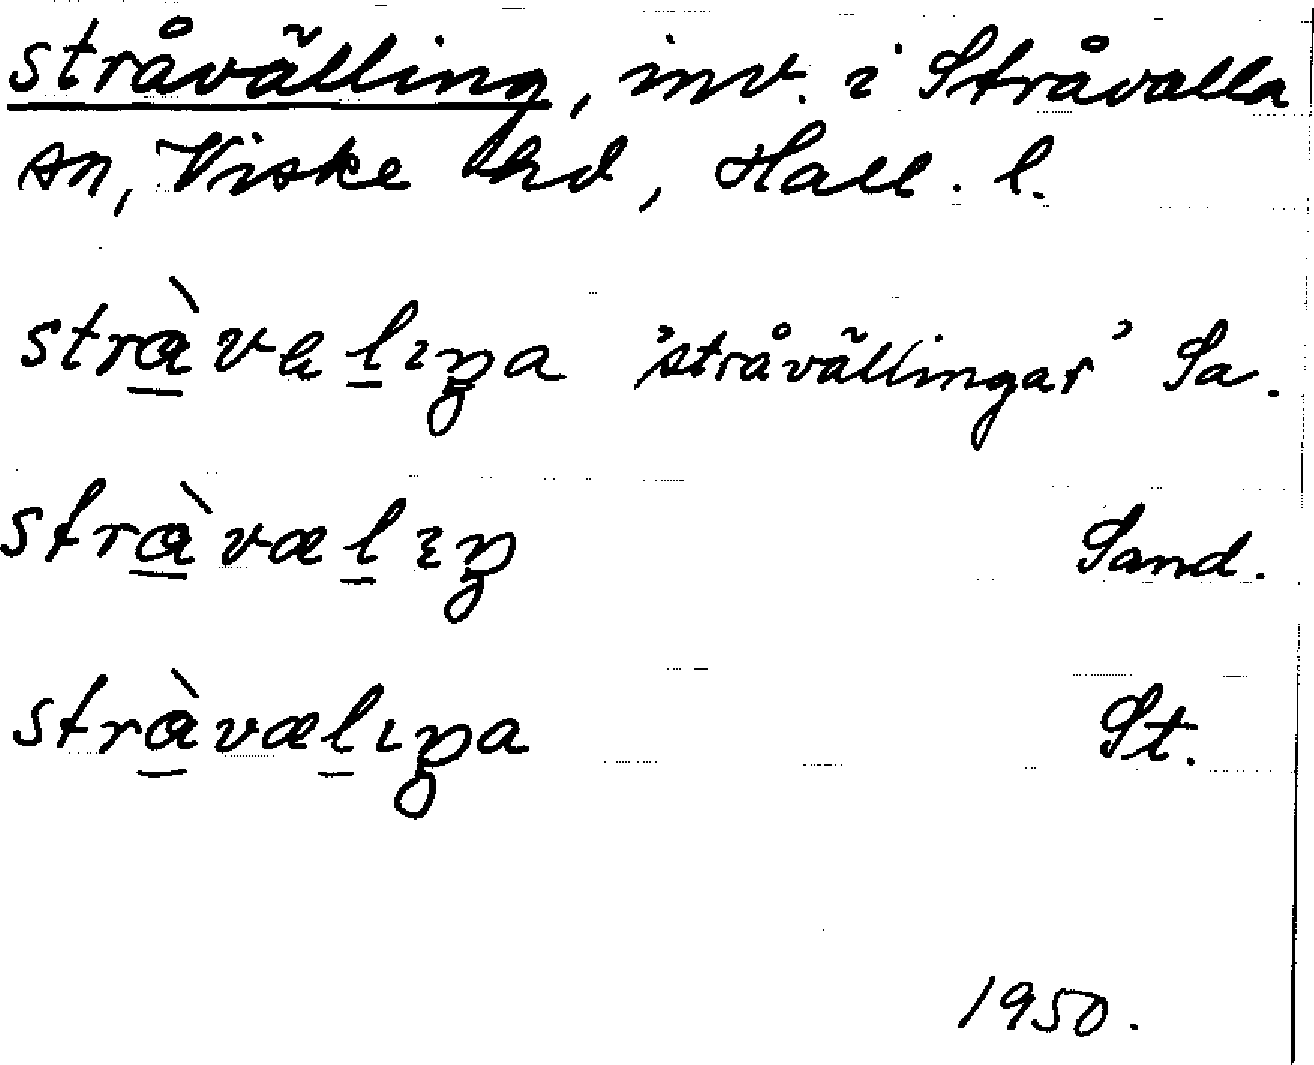 stråvälling, inv. i Stråvalla
sn, Viske hd, Hall. l.
stràvalıŋa 'stråvällingar' Sa.
stràvælıŋ Sand.
stràvælıŋa St.
1950.